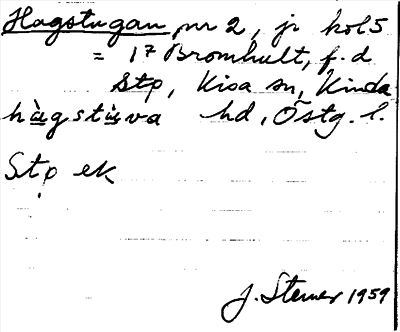 Hagstugan, nr 2, jr kol 5
= 1⁷ Bromhult, f.d
Stp, Kisa sn, Kinda
hàgstùva hd, Östg. l.
Stp ek
J. Sterner 1959